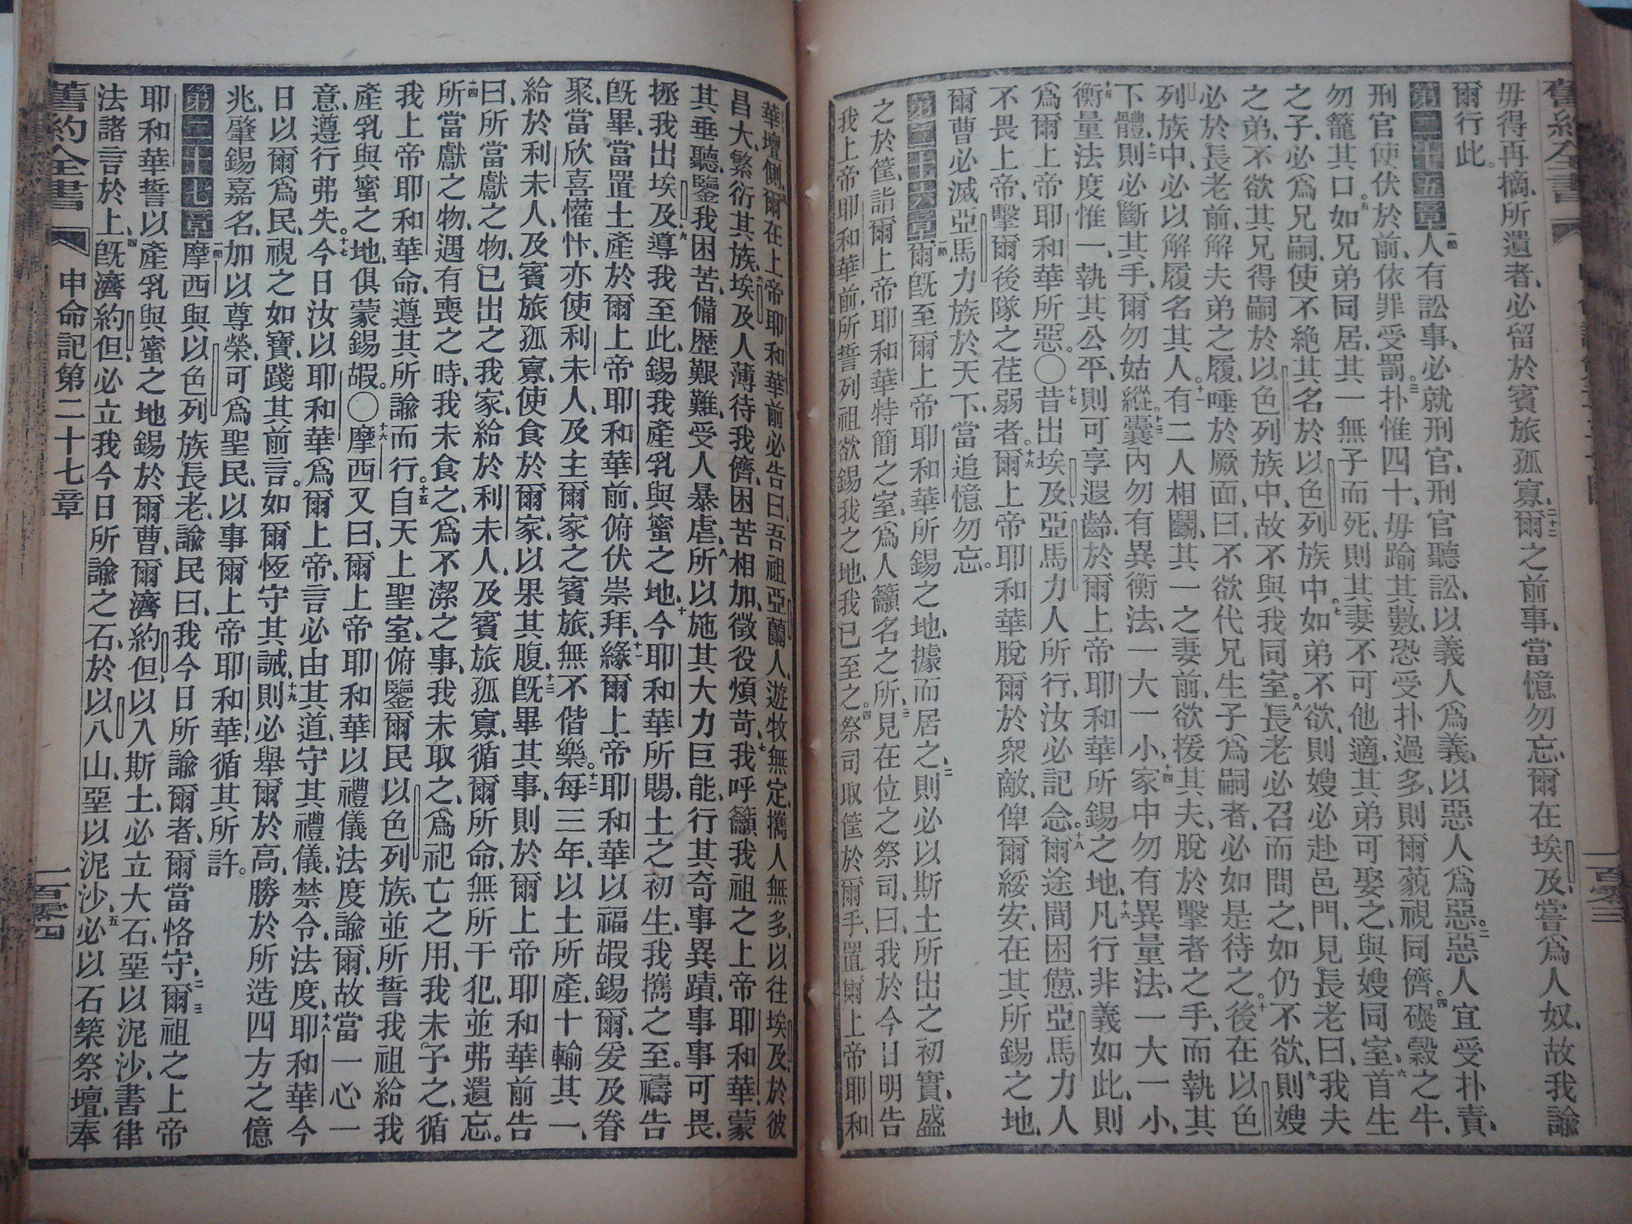 舊約全書
毋得再摘、所遺者、必留於賓旅孤寡、二十二爾之前事、當憶勿忘、爾在埃及、嘗爲人奴、故我諭
爾行此。
第二十五章一節人有訟事、必就刑官、刑官聽訟、以義人爲義、以惡人爲惡、二惡人宜受扑責、
刑官使伏於前、依罪受罰、三扑惟四十、毋踰其數、恐受扑過多、則爾藐視同儕、四碾穀之牛、
勿籠其口、五如兄弟同居、其一無子而死、則其妻不可他適、其弟可娶之、與嫂同室、六首生
之子、必爲兄嗣、使不絕其名於以色列族中、七如弟不欲、則嫂必赴邑門、見長老曰、我夫
之弟、不欲其兄得嗣於以色列族中、故不與我同室、八長老必召而問之、如仍不欲、九則嫂
必於長老前、解夫弟之履、唾於厥面、曰、不欲代兄生子爲嗣者、必如是待之、十後在以色
列族中、必以解履名其人、十一有二人相鬭、其一之妻前、欲援其夫、脫於擊者之手、而執其
下體、十二則必斷其手、爾勿姑縱、十三囊內勿有異衡法、一大一小、十四家中勿有異量法、一大一小、
十五衡量法度惟一、執其公平、則可享遐齡、於爾上帝耶和華所錫之地、十六凡行非義如此、則
爲爾上帝耶和華所惡。〇十七昔出埃及、亞馬力人所行、汝必記念、十八爾途間困憊、亞馬力人
不畏上帝、擊爾後隊之荏弱者、十九爾上帝耶和華脫爾於衆敵、俾爾綏安、在其所錫之地、
爾曹必滅亞馬力族於天下、當追憶勿忘。
第二十六章一節爾旣至爾上帝耶和華所錫之地、據而居之、二則必以斯土所出之初實、盛
之於筐、詣爾上帝耶和華特簡之室、爲人籲名之所、三見在位之祭司、曰、我於今日明告
我上帝耶和華前、所誓列祖欲錫我之地、我已至之、四祭司取筐於爾手、置爾上帝耶和
華壇側、五爾在上帝耶和華前必告曰、吾祖亞蘭人、遊牧無定、攜人無多、以往埃及、於彼
昌大繁衍其族、六埃及人薄待我儕、困苦相加、徵役煩苛、七我呼籲我祖之上帝耶和華、蒙
其垂聽、鑒我困苦、備歷艱難、受人暴虐、八所以施其大力巨能、行其奇事異蹟、事事可畏、
拯我出埃及、九導我至此、錫我產乳與蜜之地、十今耶和華所賜、土之初生、我攜之至。禱告
旣畢、當置土產於爾上帝耶和華前、俯伏崇拜、十一緣爾上帝耶和華以福嘏錫爾、爰及眷
聚、當欣喜懽忭、亦使利未人、及主爾家之賓旅、無不偕樂。十二每三年、以土所產、十輸其一、
給於利未人、及賓旅孤寡、使食於爾家、以果其腹、十三旣畢其事、則於爾上帝耶和華前告
曰、所當獻之物、已出之我家、給於利未人、及賓旅孤寡、循爾所命、無所干犯、並弗遺忘。
十四所當獻之物、遇有喪之時、我未食之、爲不潔之事、我未取之、爲祀亡之用、我未予之、循
我上帝耶和華命、遵其所諭而行。十五自天上聖室、俯鑒爾民以色列族、並所誓我祖給我
產乳與蜜之地、俱蒙錫嘏。〇十六摩西又曰、爾上帝耶和華以禮儀法度諭爾、故當一心一
意、遵行弗失、十七今日汝以耶和華爲爾上帝、言必由其道、守其禮儀、禁令法度、十八耶和華今
日以爾爲民、視之如寶、踐其前言。如爾恆守其誡、十九則必舉爾於高、勝於所造四方之億
兆、肇錫嘉名、加以尊榮、可爲聖民、以事爾上帝耶和華、循其所許。
第二十七章一節摩西與以色列族長老、諭民曰、我今日所諭爾者、爾當恪守、二三爾祖之上帝
耶和華誓以產乳與蜜之地錫於爾曹、爾濟約但、以入斯土、必立大石、堊以泥沙、書律
法諸言於上、四旣濟約但、必立我今日所諭之石、於以八山、堊以泥沙、五必以石築祭壇、奉
舊約全書
申命記第二十七章
一百零四